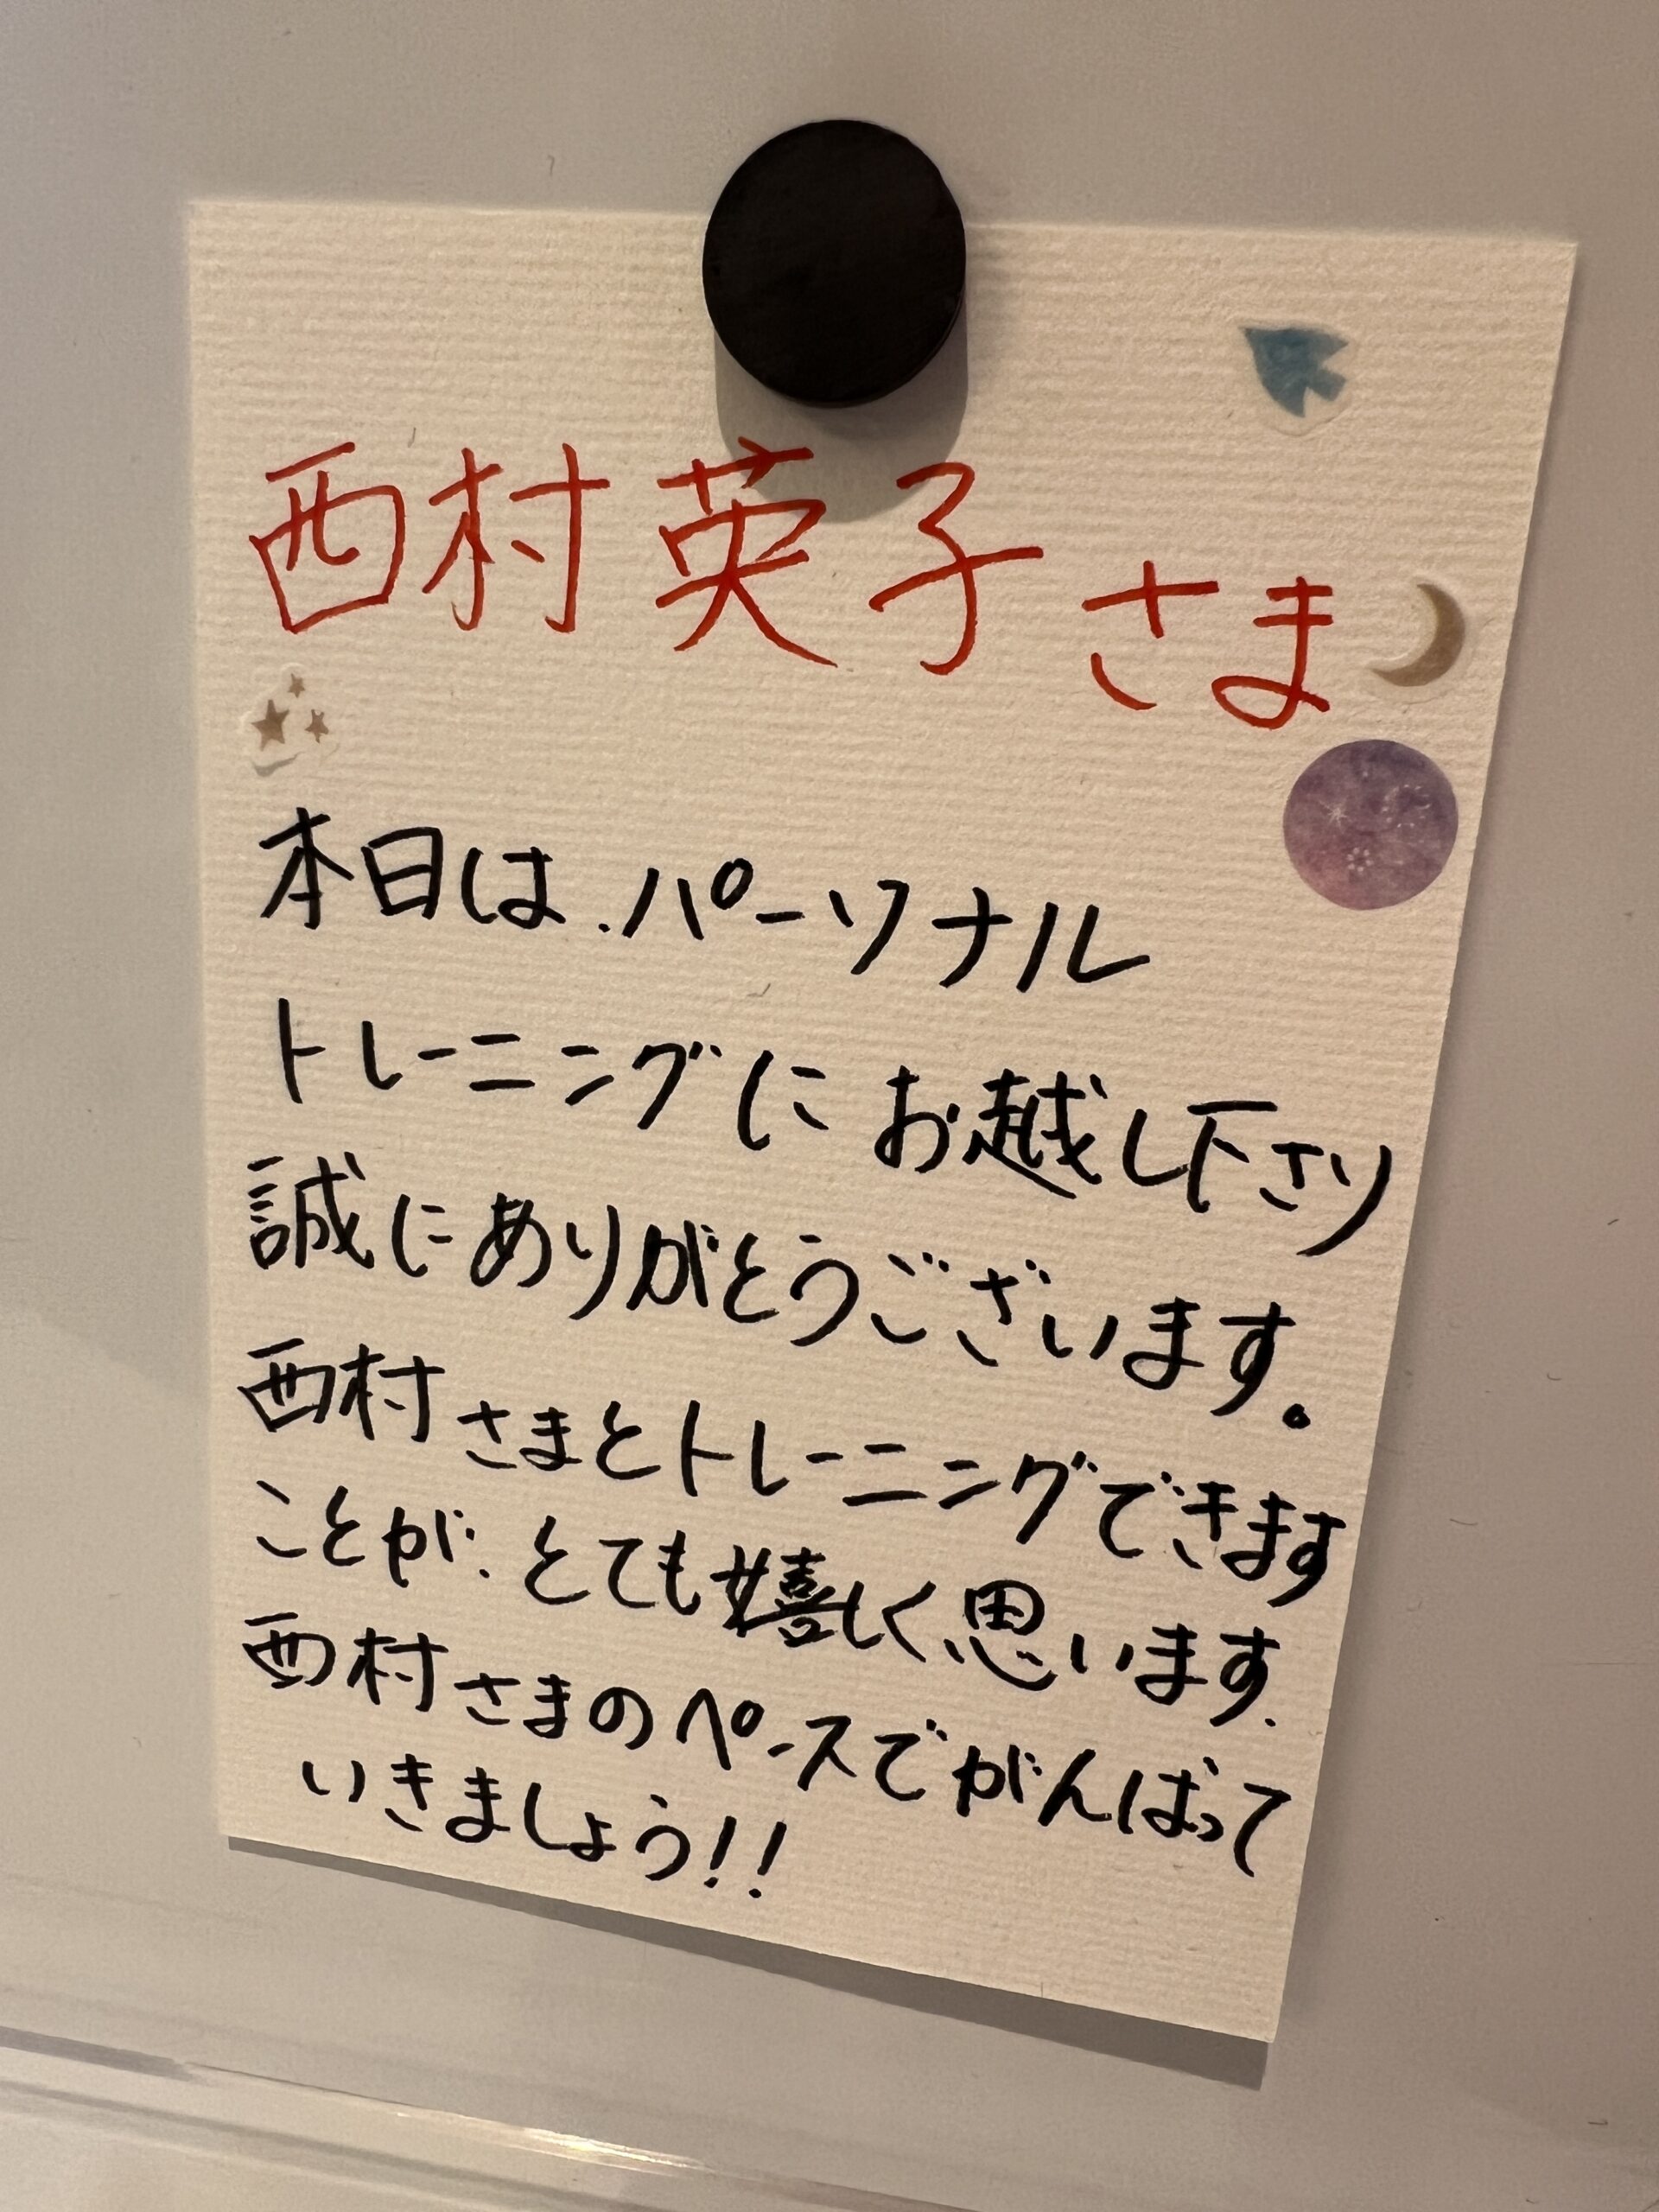 西村英子さま
本日は、パーソナル
トレーニングにお越し下さり
誠にありがとうございます。
西村さまとトレーニングできます
ことが、とても嬉しく思います。
西村さまのペースでがんばって
いきましょう!!